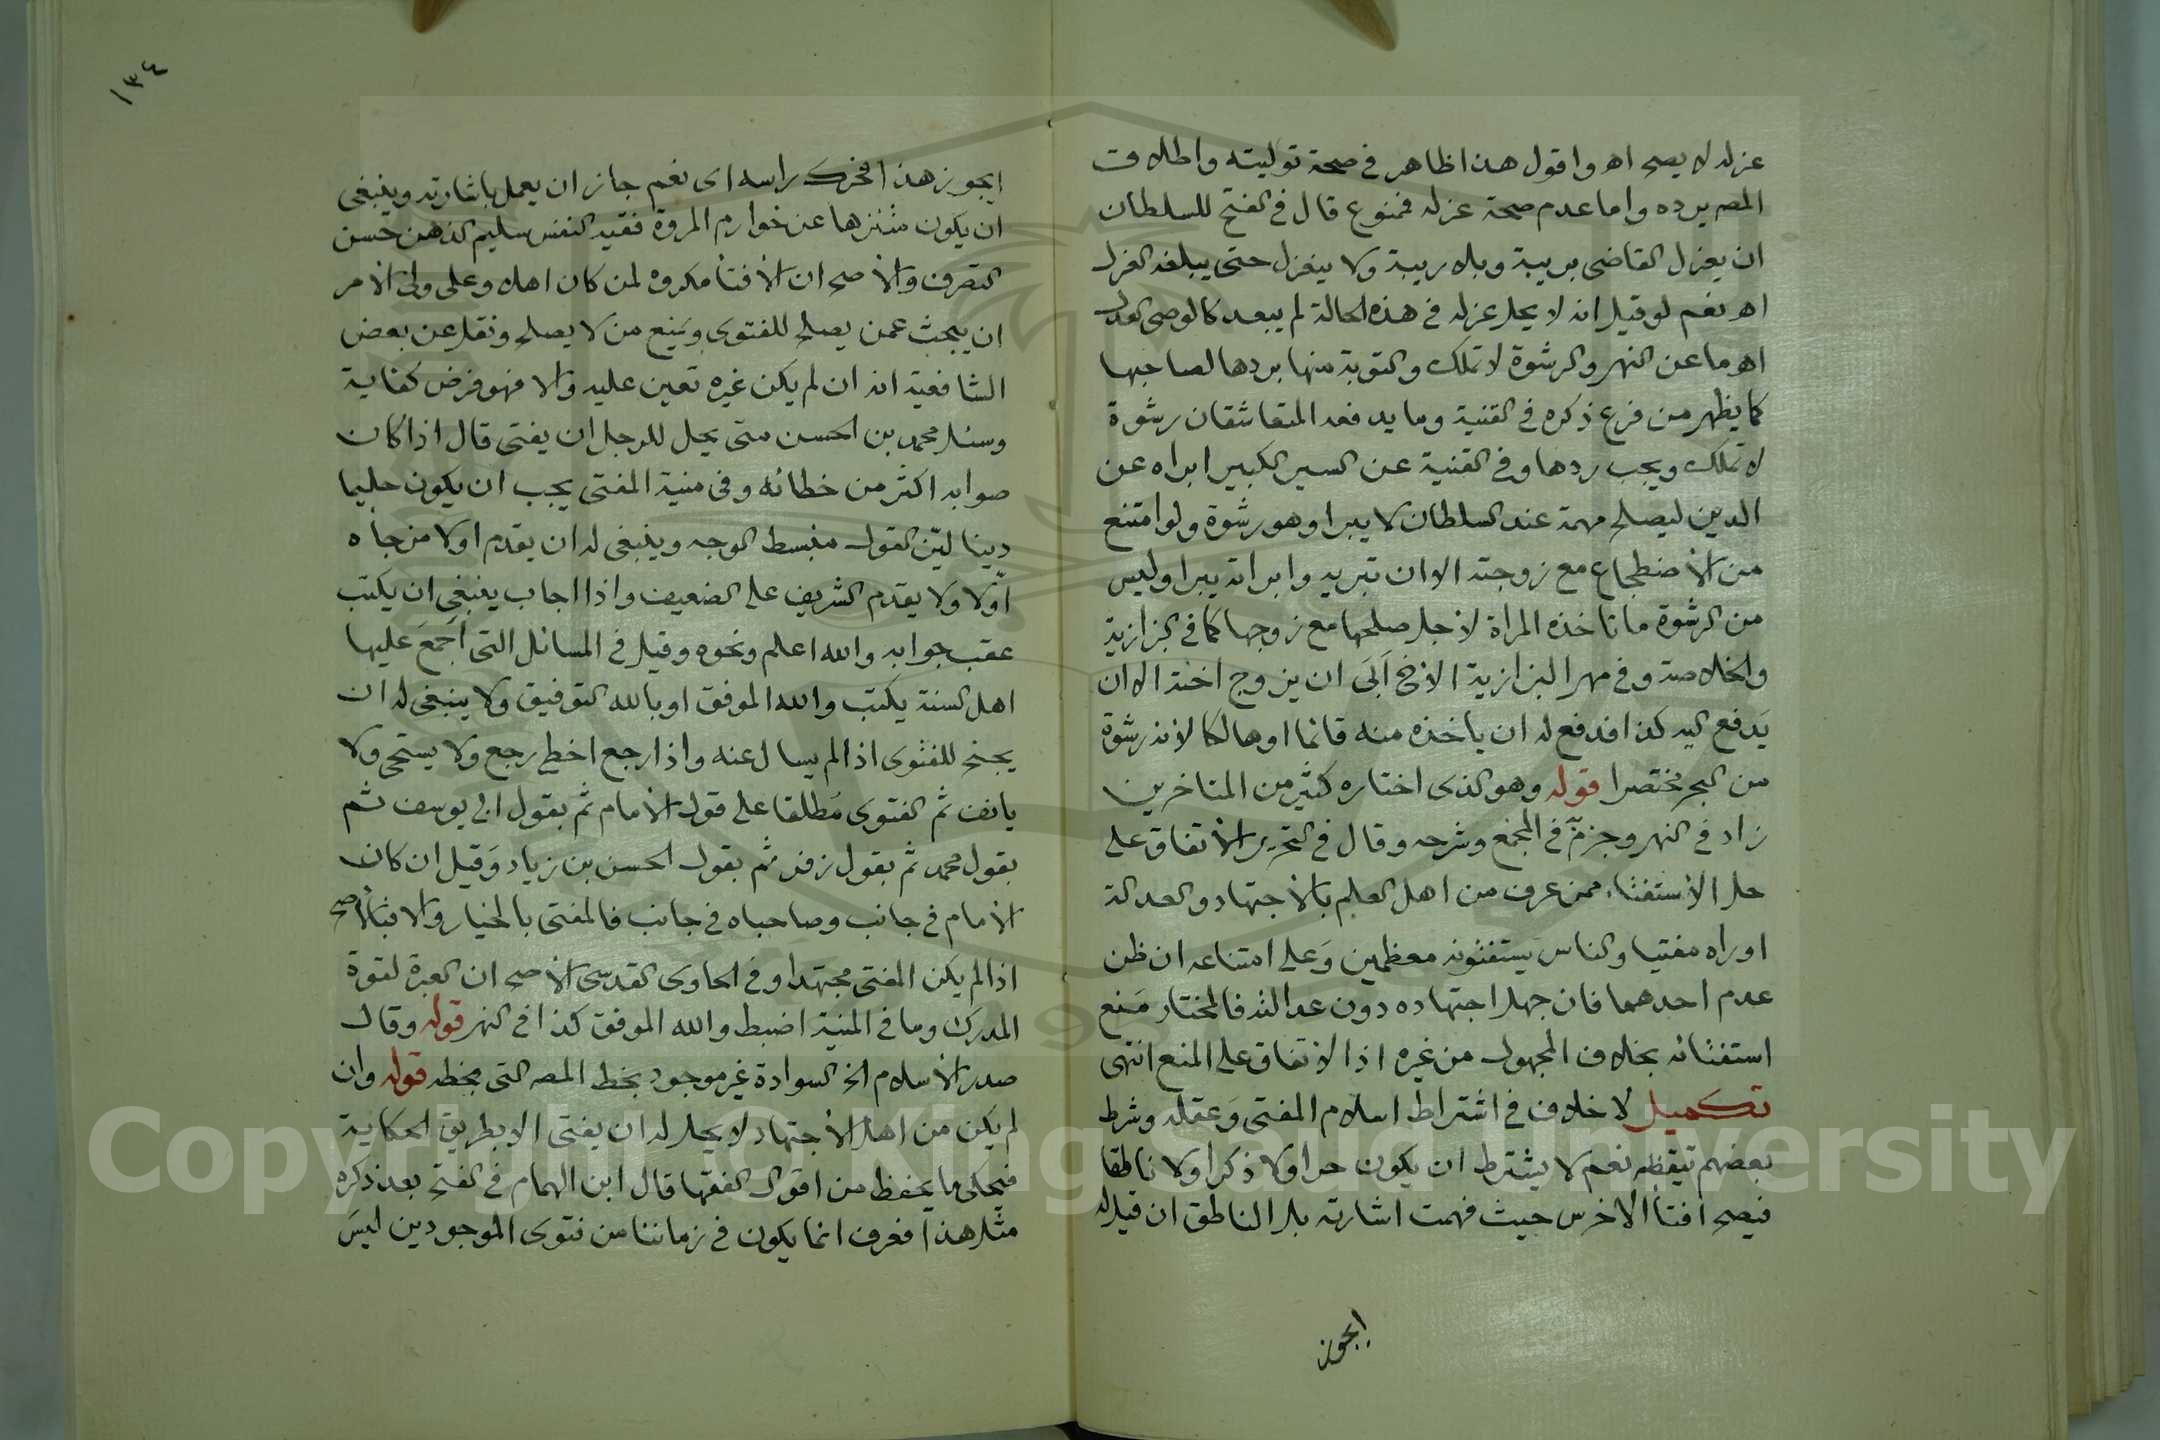 عزله لا يصح اه واقول هذا ظاهر في صحة توليته واطلاق
المص يرده واما عدم صحة عزله فممنوع قال في الفتح للسلطان
ان يعزل القاضى بريبة وبلا ريبة ولا ينعزل حتى يبلغه العزل
اه نعم لو قيل انه لا يحل عزله في هذه الحالة لم يبعد كالوصى العدل
اه وما عن النهر والرشوة لا تملك والتوبة منها بردها لصاحبها
كما يظهر من فرع ذكره في القنية وما يدفعه المتعاشقان رشوة
لا تملك ويجب ردها وفي القنية عن السير الكبير ابراه عن
الدين ليصلح مهمة عند السلطان لا يبرا وهو رشوة ولو امتنع
من الأضطجاع مع زوجته الا ان تبريه وابراته يبرا وليس
من الرشوة ما تاخذه المراة لأجل صلحها مع زوجها كما في البزازية
والخلاصة وفي مهر البزازية الأخ أبَى ان يزوج اخته الا ان
يَدفع اليه كذا فدفع له ان ياخذه منه قائما او هالكا لأنه رشوة
من البحر مختصرا قوله وهو الذى اختاره كثير من المتاخرين
زاد في النهر وجزم فى المجمع وشرحه وقال في التحرير الأتفاق على
حل الأستفتاء ممن عرف من اهل العلم بالأجتهاد والعدالة
او راه مفتيا والناس يستفتونه معظمين وَعلى امتناعه ان ظن
عدم احدهما فان جهل اجتهاده دون عدالته فالمختار مَنع
استفتائه بخلاف المجهول من غيره اذ الاتفاق على المنع انتهى
تكميل لا خلاف فى اشتراط اسلام المفتى وَعقله وشرط
بعضهم تيقظه نعم لا يشترط ان يكون حرا ولا ذكرا ولا ناطقا
فيصح افتأ الأخرس حيث فهمت اشارته بل الناطق ان قيل له
ايجوز
١٣٤
ايجوز هذا فحرك راسه اى نعم جاز ان يعمل باشارته وينبغى
ان يكون متنزها عن خوارم المروة فقيه النفس سليم الذهن حسن
التصرف والأصح ان الأفتأ مكروه لمن كان اهلا وعلى ولى الأمر
ان يبحث عمن يصلح للفتوى ويَمنع من لا يصلح ونقل عن بعض
الشافعية انه ان لم يكن غيره تعين عليه والا فهو فرض كفاية
وسئل محمد بن الحسن متى يحل للرجل ان يفتى قال اذا كان
صوابه اكثر من خطائه وفي منية المفتى يجب ان يكون حليما
دينا ليّن القول منبسط الوجه وينبغى له ان يقدم اولا من جاه
اوّلا ولا يقدم الشريف على الضعيف واذا اجاب ينبغى ان يكتب
عقب جوابه والله اعلم ونحوه وقيل في المسائل التى أجمعَ عليها
اهل السنة يكتب والله الموفق او بالله التوفيق ولا ينبغى له ان
يجنح للفتوى اذا لم يسال عنه واذا رجع اخطى رجع ولا يستحى ولا
يانف ثم الفتوى مُطلقا على قول الأمام ثم بقول ابى يوسف ثم
بقول محمد ثم بقول زفر ثم بقول الحسن بن زياد وَقيل ان كان
الأمام في جانب وصاحباه في جانب فالمفتى بالخيار والا فبالأصح
اذا لم يكن المفتى مجتهدا وفي الحاوى القدسى الأصح ان العبرة لقوة
المدرك وما في المنية اضبط والله الموفق كذا في النهر قوله وقال
صدر الأسلام الخ السوادة غير موجود بخط المصه التى بخطه قوله وان
لم يكن من اهل الأجتهاد لا يحل له ان يفتى الا بطريق الحكاية
فيحكى ما يحفظ من اقوال الفقها قال ابن الهمام في الفتح بعد ذكره
مثل هذا فعرف انما يكون في زماننا من فتوى الموجودين ليسَ
Copyright © King Saud University